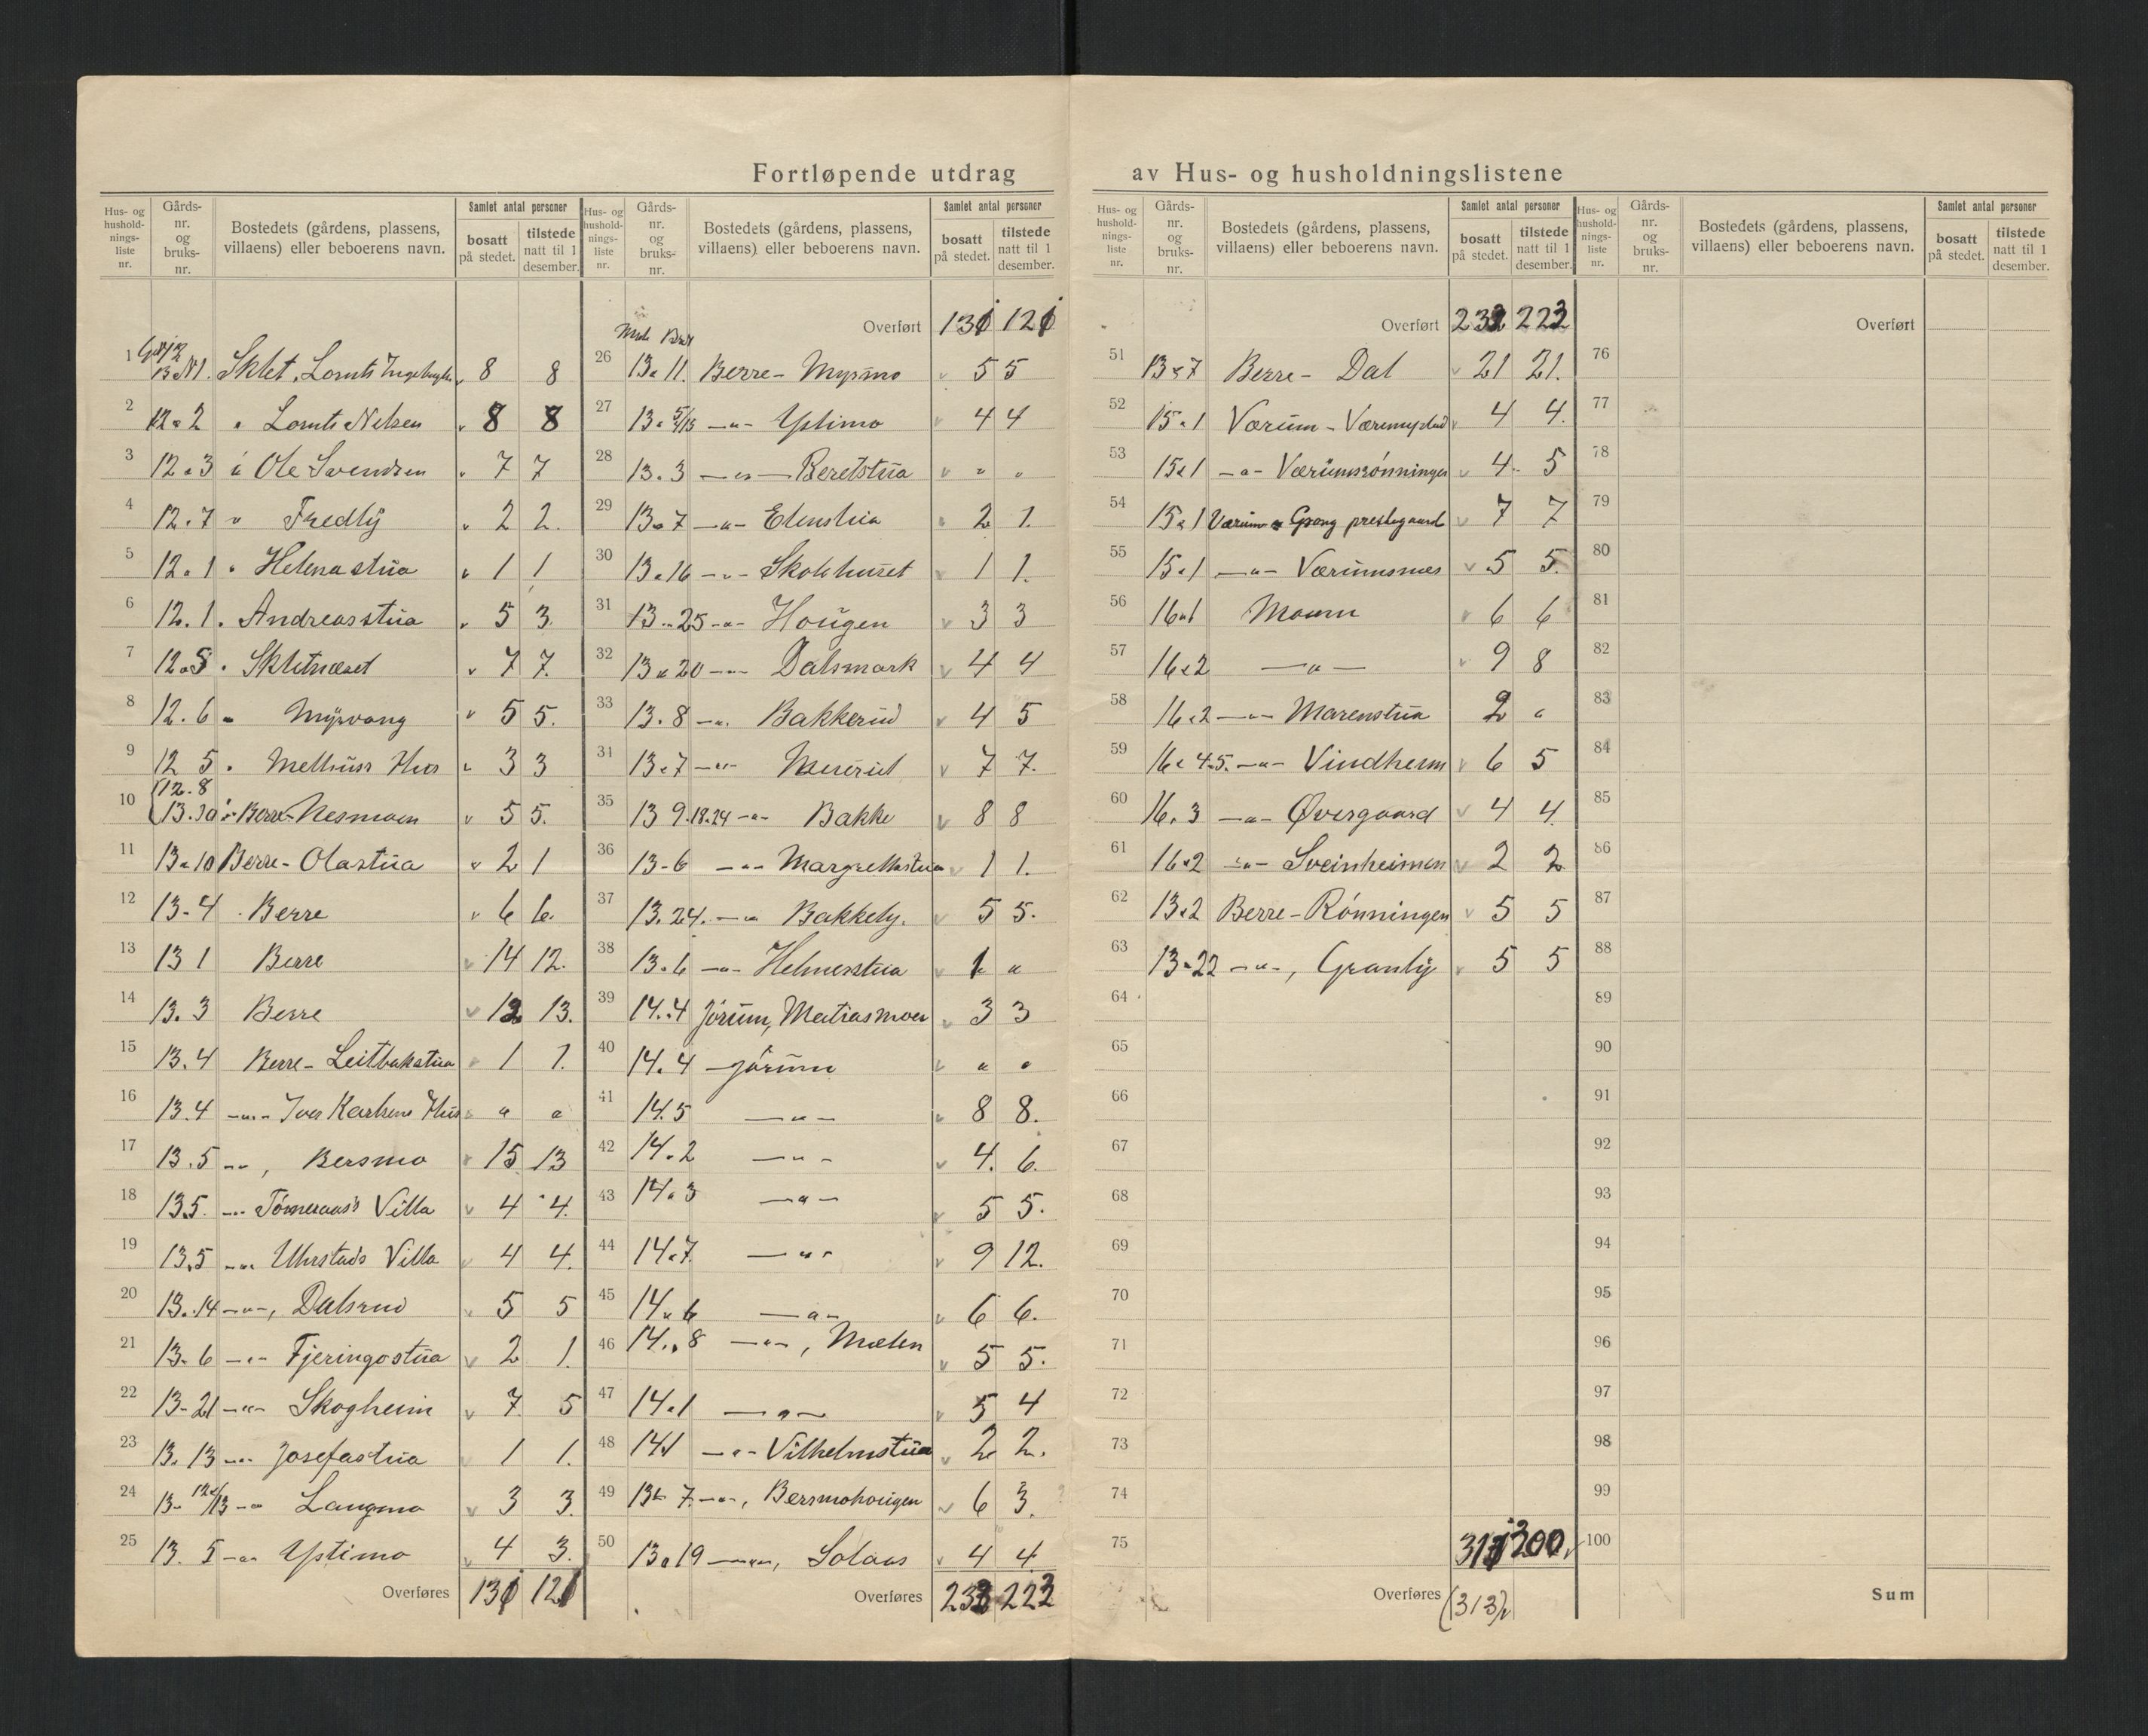 Fortløpende utdrag av Hus- og husholdningslistene
Hus- og hushold-nings-liste nr. Gårds-nr. og bruks-nr. Bostedets (gårdens, plassens, villaens) eller beboerens navn. Samlet antal personer bosatt på stedet. tilstede natt til 1 desember.
1 Sklet, Lornts 8 8
2 12 " 2 " Lornts Nilsen 8 8
3 12 " 3 " Ole Svendsen 7 7
4 12 . 7 " Fredly 2 2.
5 12 . 1 " Helenastua 1 1
6 12 . 1 . Andreasstua 5 3.
7 Skletnæset 7 7.
8 12 . 6 " Myrvang 5 5.
9 12 5 . Melhuss Hus 3 3
12 . 8
10 Berre-Nesmoen 5 5.
11 13 " 10 Berre-Olastua 2 1
12 13 - 4 Berre 6 6.
13 13 1 Berre 14 12.
14 13. 3 Berre 12 13.
15 13. 4 Berre- 1 1.
16 13. 4 —"— Hus " "
17 13 . 5 —"—, Bersmo 15 13
18 13 5. —"— Villa 4 4.
19 13. 5 —"— Villa 4 4.
20 13. 14 —"—, Dalsrud 5 5
21 13. 6 —"— Fjeringostua 2 1.
22 13 - 21 —"— Skogheim 7 5
23 13. 13 —"— Josefastua 1 1.
24 —"— Langmo 3 3.
25 13. 5 —"— Ystimo 4 3.
Overføres 131 121
Hus- og hushold-nings-liste nr. Gårds-nr. og bruks-nr. Bostedets (gårdens, plassens, villaens) eller beboerens navn. Samlet antal personer bosatt på stedet. tilstede natt til 1 desember.
Overført 131 121
26 13 " 11. Berre- Myrmo 5 5
27 13. 5/15 —"— Ystimo 4 4
28 13. 3 —"— Beretstua " "
29 13 " 7 —"— Elenstua 2 1.
30 13 " 16 —"— Skolehuset 1 1.
31 13 " 25 —"— Hougen 3 3
32 13 " 20 —"— Dalsmark 4 4
33 13. 8 —"— Bakkerud 4 5
34 13 " 7 —"— Meieriet 7 7.
35 13 9.18.24 —"— Bakke 8 8
36 13 - 6 —"— 1 1.
37 13. 24. —"— Bakkely. 5 5.
38 13. 6 —"— Helmerstua 1 "
39 14. 4 Jørum, Matiasmoen 3 3
40 14. 4 Jørum " "
41 14. 5 —"— 8 8.
42 14. 2 —"— 4. 6.
43 14 " 3 —"— 5 5.
44 14 " 7. —"— 9 12.
45 14 " 6 —"— 6 6.
46 14 " 8 —"—, Mælen 5 5.
47 14 " 1 —"— 5 4
48 14 1 —"— Vilhelmstua 2 2.
49 13 " 7 —"—, Bersmohougen 6 3.
50 13 " 19 —"—, Solaas 4 4
Overføres 222
Hus- og hushold-nings-liste nr. Gårds-nr. og bruks-nr. Bostedets (gårdens, plassens, villaens) eller beboerens navn. Samlet antal personer bosatt på stedet. tilstede natt til 1 desember.
Overført 223
51 13 " 7 Berre- Dal 21 21.
52 15 " 1 Værum - 4 4.
53 15 " 1 —"— Værumsrønningen 4 5
54 15 " 1 Værum " Grong prestegaard 7 7
55 15 " 1 —"— Værumsnes 5 5.
56 16 " 1 Moum 6 6
57 16 " 2 —"— 9 8
58 16 " 2 —"— Marenstua 2 "
59 16 " 4.5. —"— Vindheim 6 5
60 16. 3 —"— Øvergaard 4 4.
61 16 " 2 —"— Sveinheimen 2 2
62 13 " 2 Berre-Rønningen 5 5
63 13 " 22 —"—, Granly 5 5
64
65
66
67
68
69
70
71
72
73
74
75 300
Overføres (313)
Hus- og hushold-nings-liste nr. Gårds-nr. og bruks-nr. Bostedets (gårdens, plassens, villaens) eller beboerens navn. Samlet antal personer bosatt på stedet. tilstede natt til 1 desember.
Overført
76
77
78
79
80
81
82
83
84
85
86
87
88
89
90
91
92
93
94
95
96
97
98
99
100
Sum